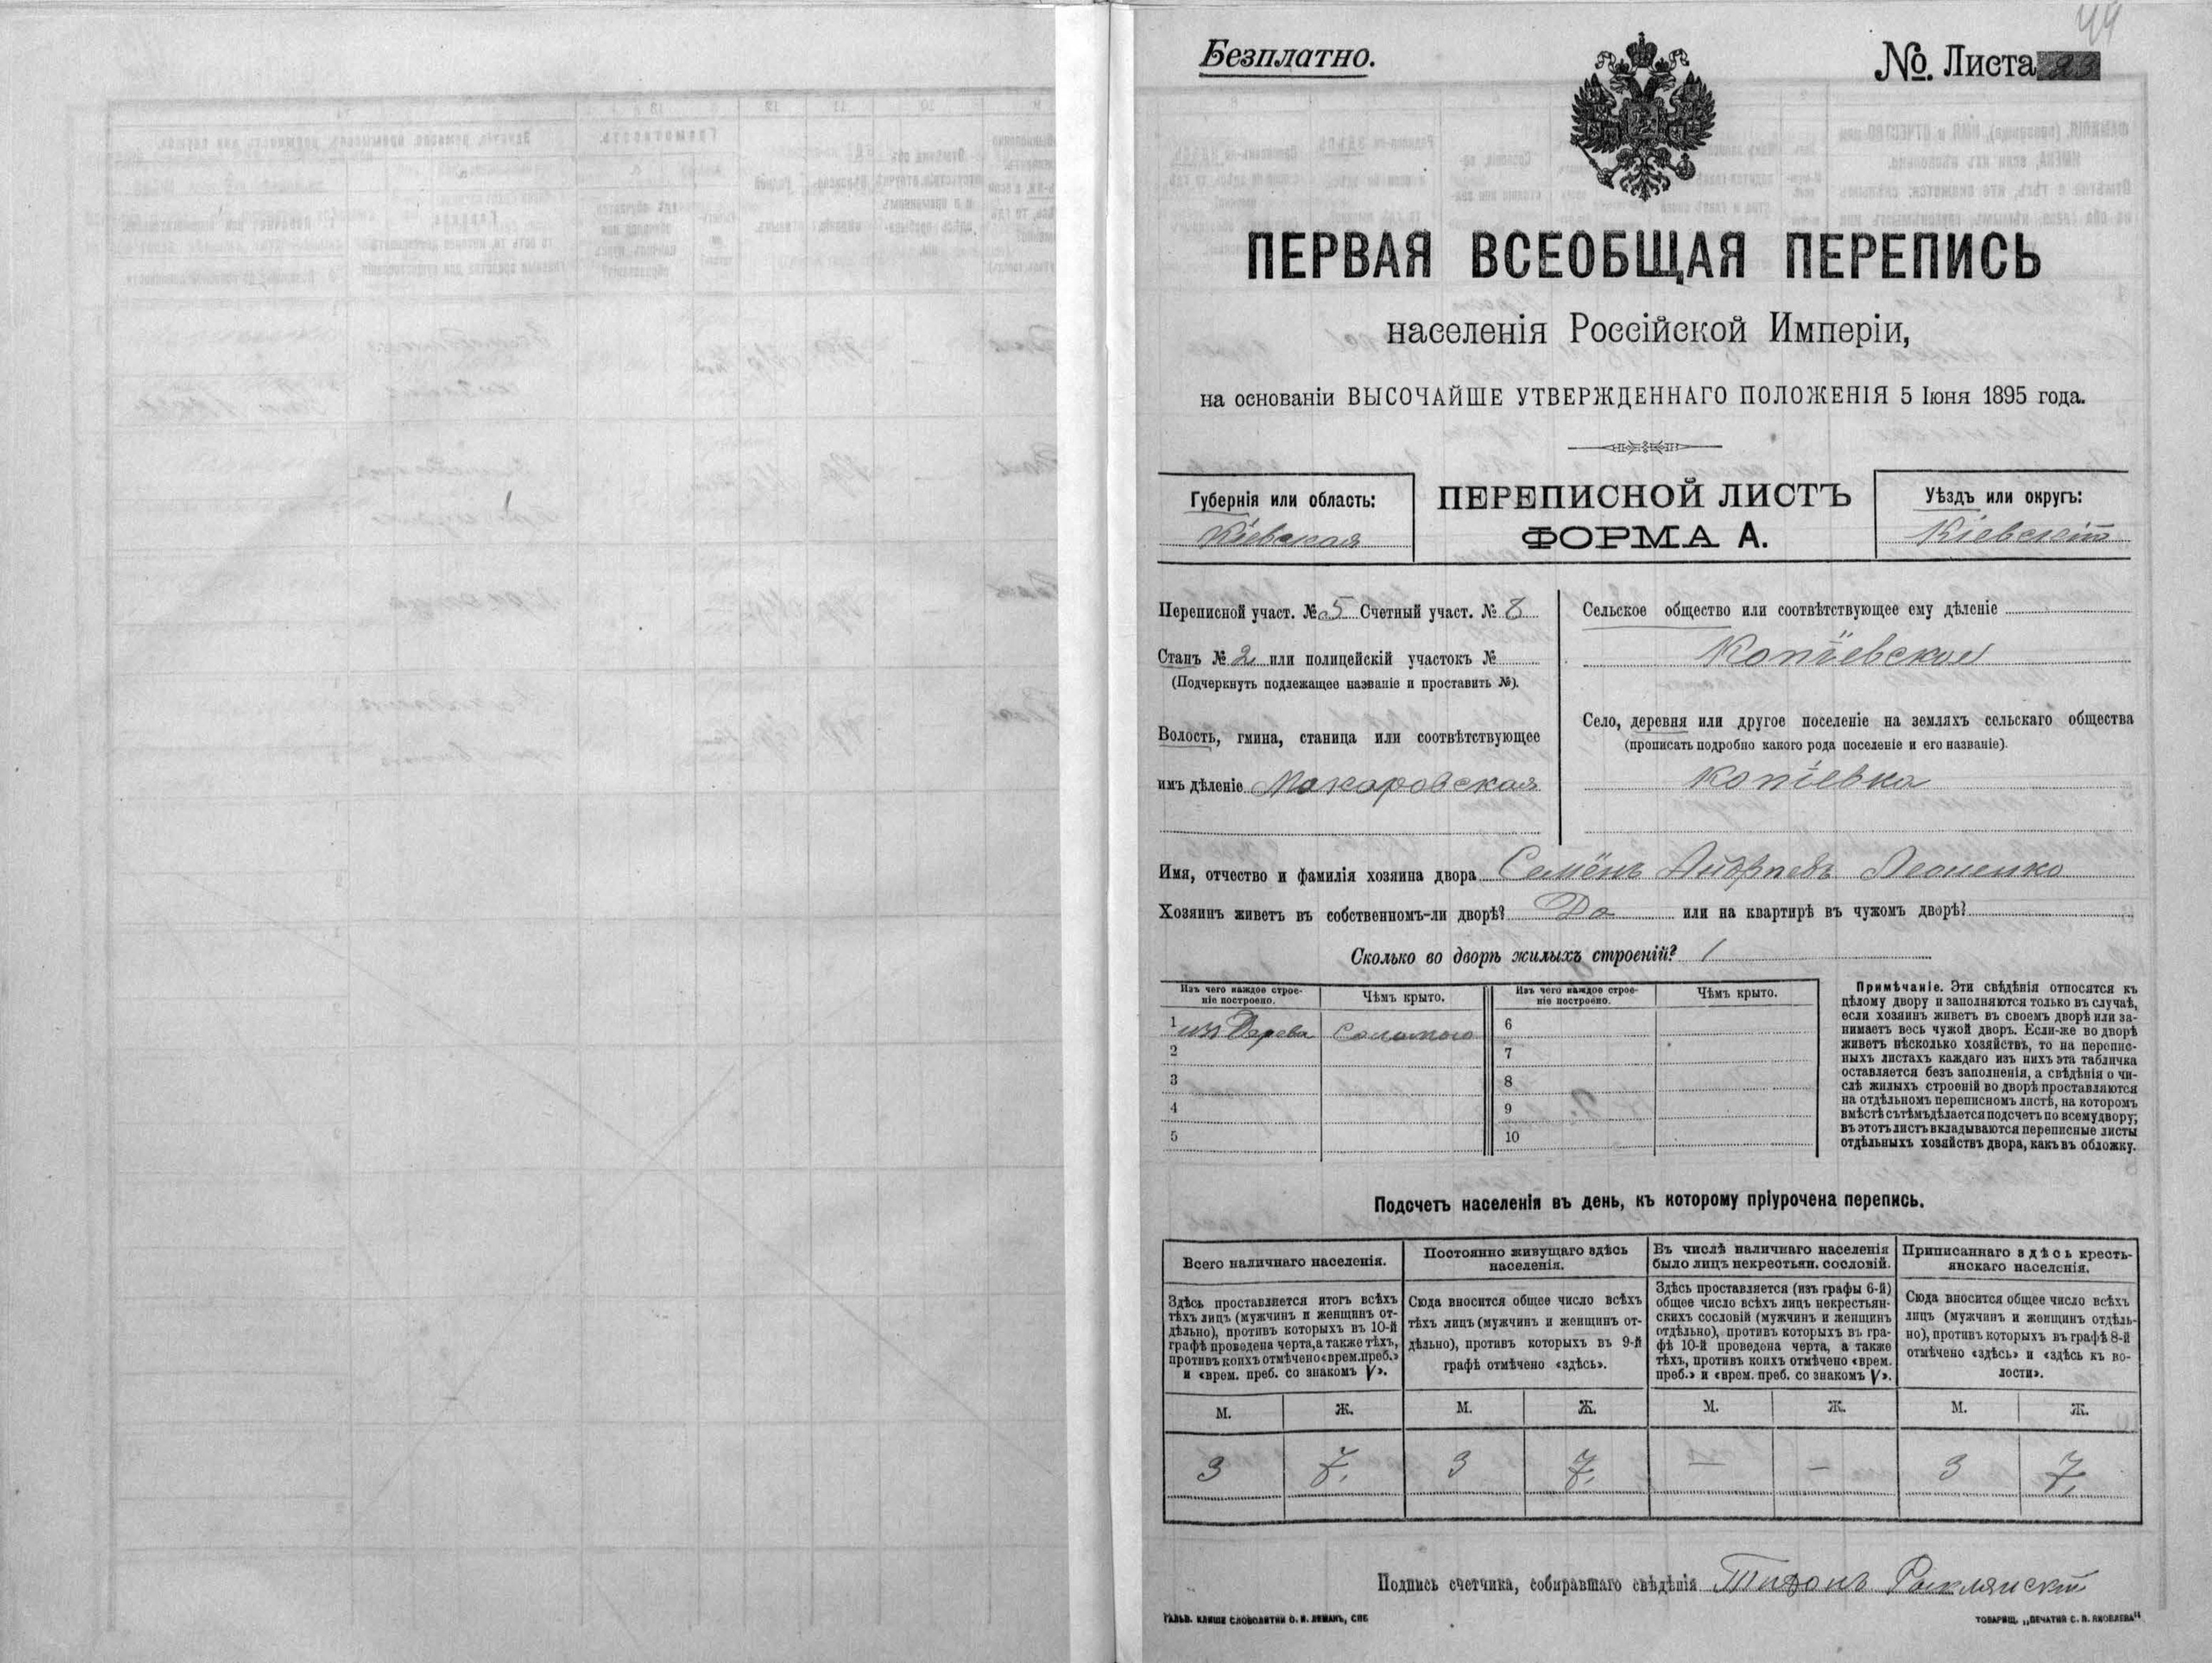 44
Безплатно.
№. Листа 23
ПЕРВАЯ ВСЕОБЩАЯ ПЕРЕПИСЬ
населенія Россійской Имперіи,
на основаніи ВЫСОЧАЙШЕ УТВЕРЖДЕННАГО ПОЛОЖЕНІЯ 5 Іюня 1895 года.
Губернія или область:
Кіевская
ПЕРЕПИСНОЙ ЛИСТЪ
ФОРМА А.
Уѣздъ или округъ:
Кіевскій
Переписной участ. № 5 Счетный участ. № 8
Станъ № 2 или полицейскій участокъ №
(Подчеркнуть подлежащее названіе и проставить №).
Волость, гмина, станица или соотвѣтствующее
имъ дѣленіе Макаровская
Сельское общество или соотвѣтствующее ему дѣленіе
Копіевское
Село, деревня или другое поселеніе на земляхъ сельскаго общества
(прописать подробно какого рода поселеніе и его названіе).
Копіевка
Имя, отчество и фамилія хозяина двора Семёнъ Андрпевъ Леоненко
Хозяинъ живетъ въ собственномъ-ли дворѣ? Да или на квартирѣ въ чужомъ дворѣ?
Сколько во дворѣ жилыхъ строеній? 1
Изъ чего каждое строе-
ніе построено.
Чѣмъ крыто.
Изъ чего каждое строе-
ніе построено.
Чѣмъ крыто.
1 изъ Дерева Соломою 6
2 7
3 8
4 9
5 10
Примѣчаніе. Эти свѣдѣнія относятся къ
цѣлому двору и заполняются только въ случаѣ,
если хозяинъ живетъ въ своемъ дворѣ или за-
нимаетъ весь чужой дворъ. Если-же во дворѣ
живетъ нѣсколько хозяйствъ, то на перепис-
ныхъ листахъ каждаго изъ нихъ эта табличка
оставляется безъ заполненія, а свѣдѣнія о чи-
слѣ жилыхъ строеній во дворѣ проставляются
на отдѣльномъ переписномъ листѣ, на которомъ
вмѣстѣ съ тѣмъ дѣлается подсчетъ по всему двору;
въ этотъ листъ вкладываются переписные листы
отдѣльныхъ хозяйствъ двора, какъ въ обложку.
Подсчетъ населенія въ день, къ которому пріурочена перепись.
Всего наличнаго населенія.
Постоянно живущаго здѣсь
населенія.
Въ числѣ наличнаго населенія
было лицъ некрестьян. сословій.
Приписаннаго здѣсь кресть-
янскаго населенія.
Здѣсь проставляется итогъ всѣхъ
тѣхъ лицъ (мужчинъ и женщинъ от-
дѣльно), противъ которыхъ въ 10-й
графѣ проведена черта, а также тѣхъ,
противъ коихъ отмѣчено «врем. преб.»
и «врем. преб. со знакомъ V».
Сюда вносится общее число всѣхъ
тѣхъ лицъ (мужчинъ и женщинъ от-
дѣльно), противъ которыхъ въ 9-й
графѣ отмѣчено «здѣсь».
Здѣсь проставляется (изъ графы 6-й)
общее число всѣхъ лицъ некрестьян-
скихъ сословій (мужчинъ и женщинъ
отдѣльно), противъ которыхъ въ гра-
фѣ 10-й проведена черта, а также
тѣхъ, противъ коихъ отмѣчено «врем.
преб.» и «врем. преб. со знакомъ V».
Сюда вносится общее число всѣхъ
лицъ (мужчинъ и женщинъ отдѣль-
но), противъ которыхъ въ графѣ 8-й
отмѣчено «здѣсь» и «здѣсь къ во-
лости».
М. Ж. М. Ж. М. Ж. М. Ж.
3 7. 3 7. — — 3 7.
Подпись счетчика, собиравшаго свѣдѣнія Тихонъ
ГАЛЬВ. КЛИШЕ СЛОВОЛИТНИ О. И. ЛЕМАНЪ, СПБ
ТОВАРИЩ. „ПЕЧАТНЯ С. П. ЯКОВЛЕВА“